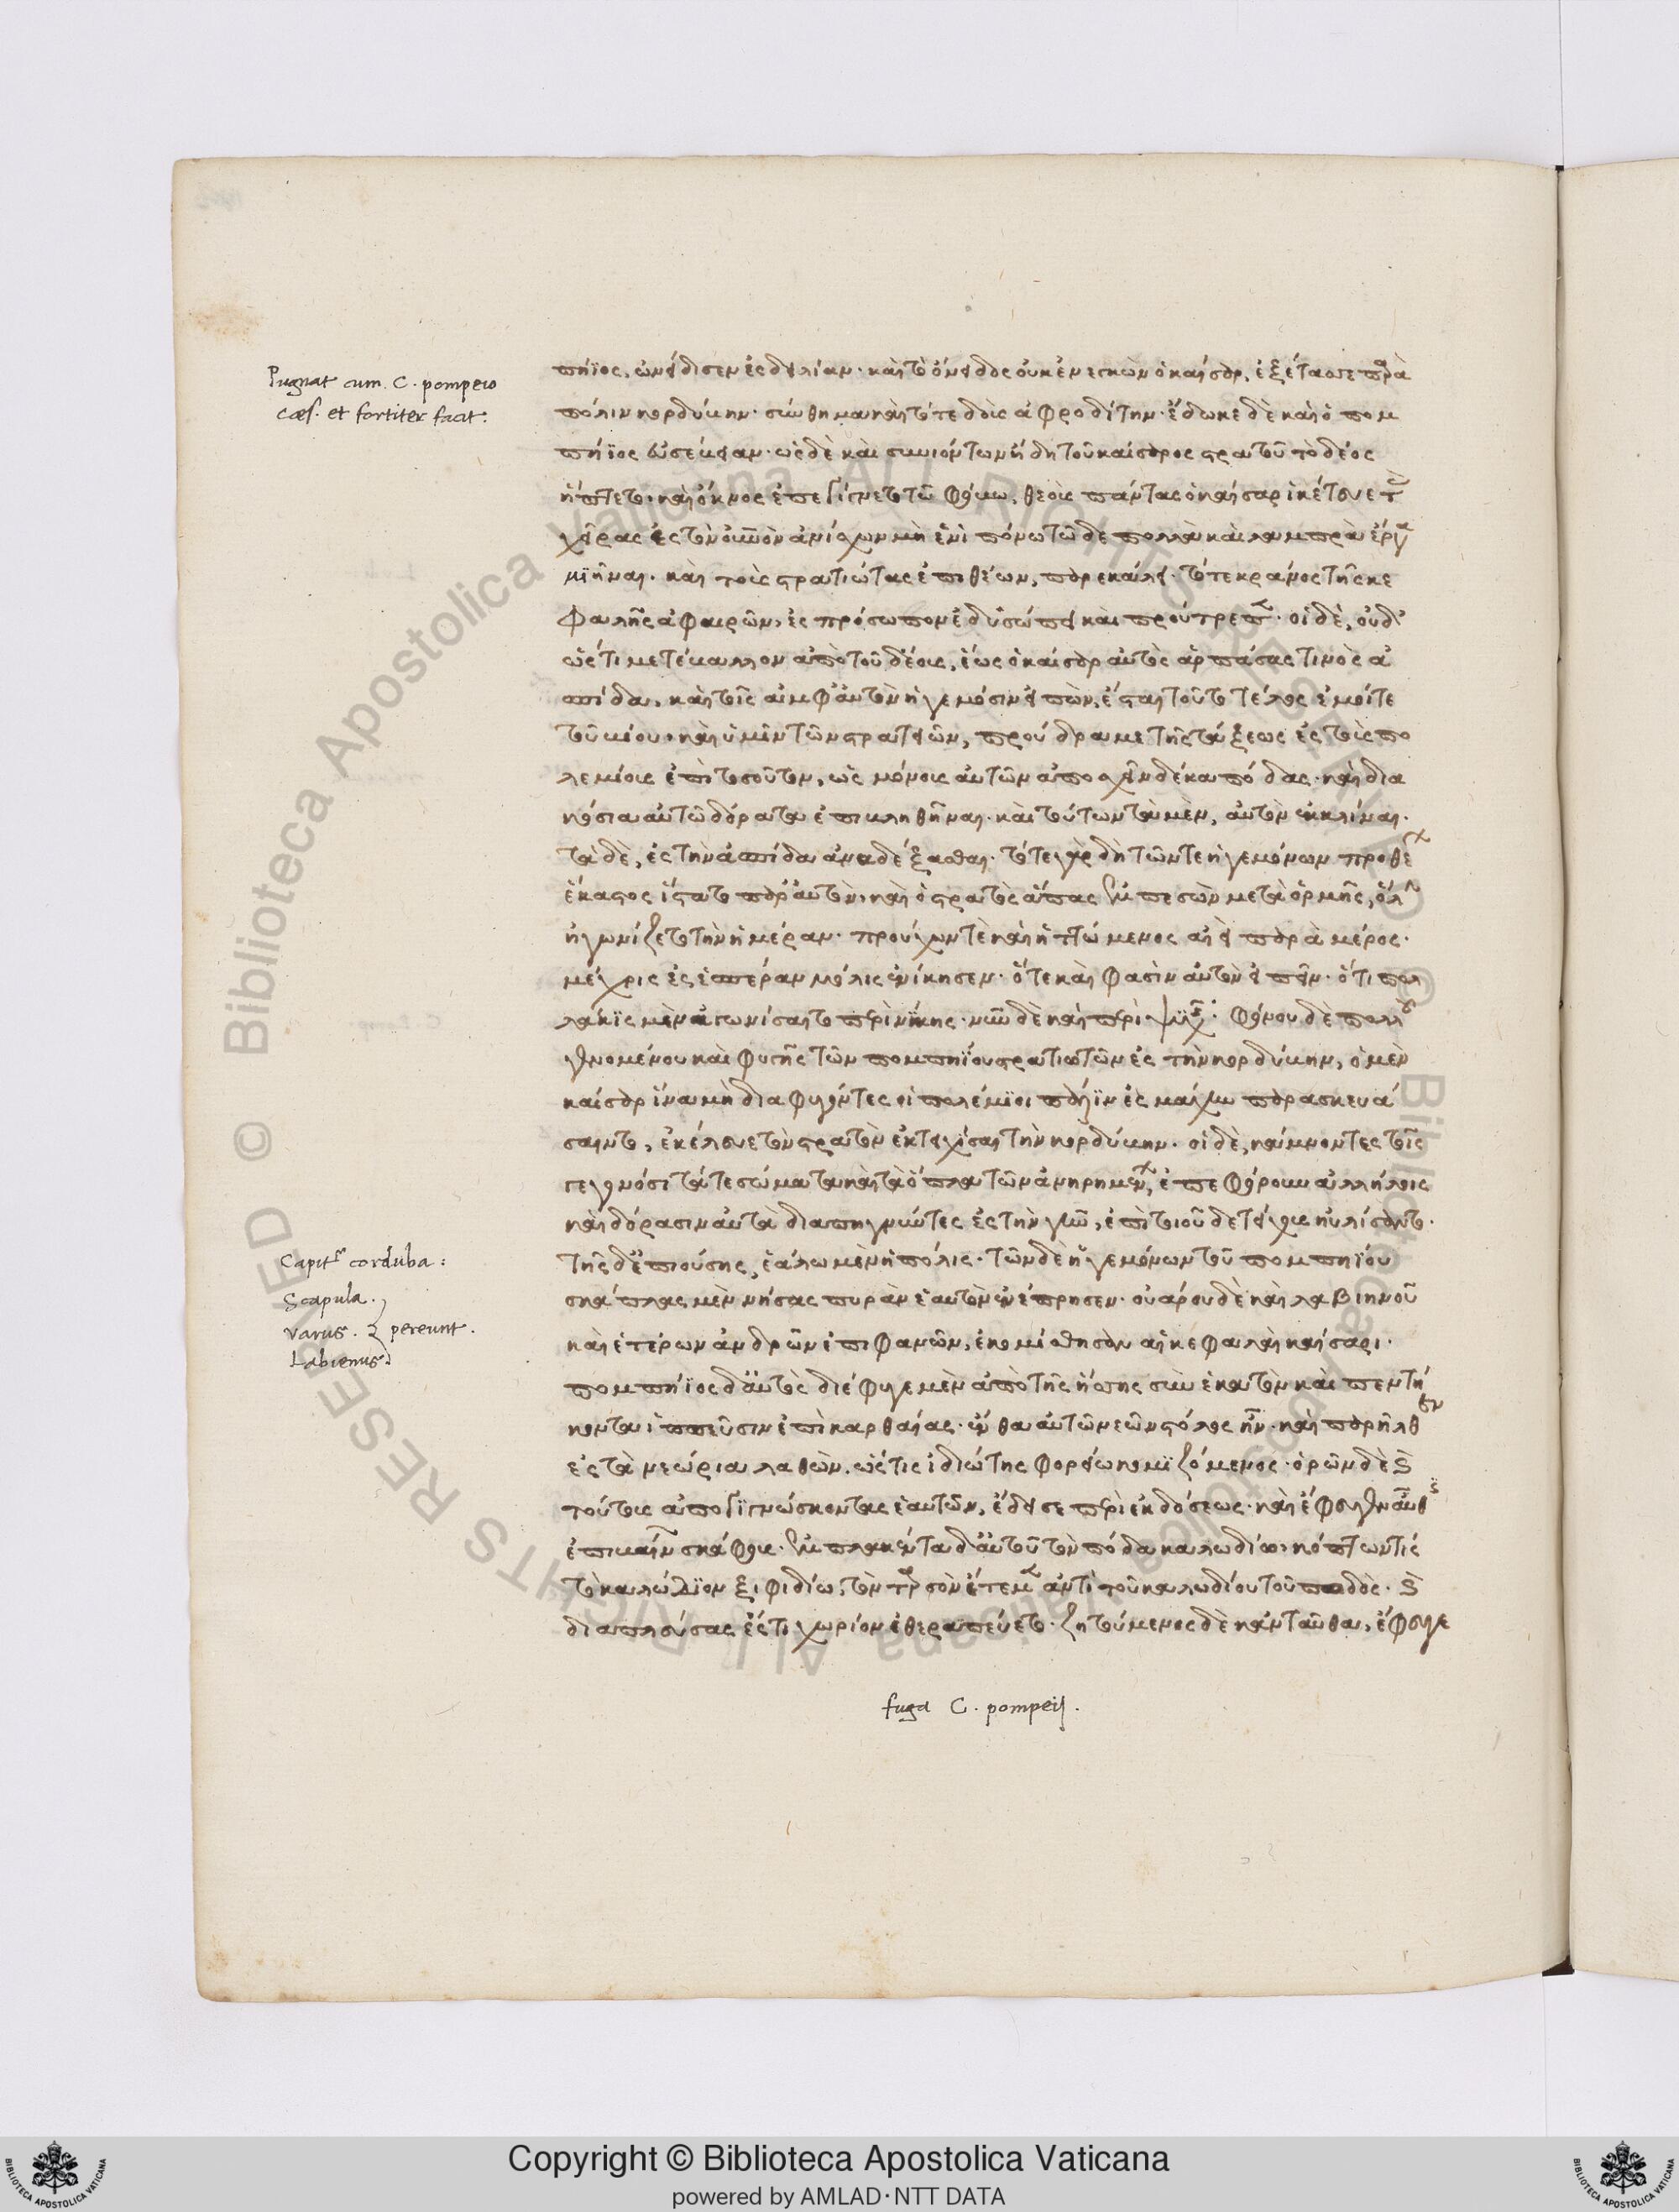 Pugnat cum. C. pompeio
Caes. et fortiter facit:
πήϊος, ὠνείδισεν ἐς δειλίαν· καὶ τὸ ὄνειδος οὐκ ἐνεγκὼν ὁ καίσαρ, ἐξέτασσε παρὰ
πόλιν κορδύβην· σύνθημα καὶ τότε δοὺς ἀφροδίτην· ἔδωκε δὲ καὶ ὁ πομ
πήϊος εὐσέβειαν· ὡς δὲ καὶ συνιόντων ἤδη τοῦ καίσαρος στρατοῦ τὸ δέος
ἥπτετο, καὶ ὄκνος ἐπεγίγνετο τῶ φόβω, θεοὺς πάντας ὁ καίσαρ ἱκέτευε τὰς
χεῖρας ἐς τὸν οὐνὸν ἀνίσχων μὴ ἑνὶ πόνω τῶδε πολλὰ καὶ λαμπρὰ ἔργα
μϊῆναι. καὶ τοὺς στρατιώτας ἐπιθέων, παρεκάλει· τό τε κράνος τῆς κε
φαλῆς ἀφαιρῶν, ἐς πρόσωπον ἐδυσώπει καὶ προύτρεπεν· οἱ δὲ, οὐδ'
ὥς τι μετέβαλλον ἀπὸ τοῦ δέους, ἕως ὁ καίσαρ αὐτὸς ἁρπάσας τινὸς ἀ
σπίδα, καὶ τοῖς ἀμφ' αὐτὸν ἡγεμόσιν εἰπὼν, ἔσται τοῦτο τέλος ἐμοί τε
τοῦ βίου, καὶ ὑμῖν τῶν στρατειῶν, προύδραμε τῆς τάξεως ἐς τοὺς πο
λεμίους ἐπὶ τοσοῦτον, ὡς μόνους αὐτῶν ἀποσχεῖν δέκα πόδας· καὶ δια
κόσια αὐτῶ δόρατα ἐπιβληθῆναι. καὶ τούτων τὰ μὲν, αὐτὸν ἐκκλίναι.
τὰ δὲ, ἐς τὴν ἀσπίδα ἀναδέξασθαι. τότε γὰρ δὴ τῶν τε ἡγεμόνων προθέων
ἕκαστος ἵστατο παρ' αὐτὸν, καὶ ὁ στρατὸς ἅπας ἐμπεσὼν μετὰ ὁρμῆς, ὅλην
ἠγωνίζετο τὴν ἡμέραν. προύχων τὲ καὶ ἡττώμενος αἰεὶ παρὰ μέρος.
μέχρις ἐς ἑσπέραν μόλις ἐνίκησεν. ὅτε καὶ φασὶν αὐτὸν εἰπεῖν. ὅτι πολ
λάκϊς μὲν ἀγωνίσαιτο περὶ νίκης. νῦν δὲ καὶ περὶ ψυχῆς. φόνου δὲ πολλοῦ
γενομένου καὶ φυγῆς τῶν πομπηΐου στρατιωτῶν ἐς τὴν κορδύβην, ὁ μὲν
καίσαρ ἵνα μὴ διαφυγόντες οἱ πολέμϊοι πάλϊν ἐς μάχην παρασκευά
σαιντο, ἐκέλευε τὸν στρατὸν ἐκτειχίσαι τὴν κορδύβην. οἱ δὲ, κάμνοντες τοῖς
γεγονόσι τά τε σώματα καὶ τὰ ὅπλα τῶν ἀνηρημένων, ἐπεφόρουν ἀλλήλοις
καὶ δόρασιν αὐτὰ διαπηγνύντες ἐς τὴν γῆν, ἐπὶ τοιοῦδε τείχους ηὐλίσαντο.
Capitur corduba:
τῆς δ' ἐπιούσης, ἑάλω μὲν ἡ πόλις. τῶν δὲ ἡγεμόνων τοῦ πομπηΐου
Scapula.
σκάπλας μὲν νήσας πυρὰν ἑαυτὸν ἐνέπρησεν. οὐάρου δὲ καὶ λαβιηνοῦ
varus. } pereunt.
καὶ ἑτέρων ἀνδρῶν ἐπιφανῶν, ἐκομίσθησαν αἱ κεφαλαὶ καίσαρι.
Labienus
πομπήϊος δ' αὐτὸς διέφυγε μὲν ἀπὸ τῆς ἥσσης σὺν ἑκατὸν καὶ πεντή
κοντα ἱππεῦσιν ἐπὶ καρθαίας. ἔνθα αὐτῶ νεῶν στόλος ἦν. καὶ παρῆλθεν
ἐς τὰ νεώρια λαθὼν. ὥς τις ἰδιώτης φορείω κομϊζόμενος. ὁρῶν δὲ καὶ
τούτους ἀπογϊγνώσκοντας ἑαυτῶν, ἔδεισε περὶ ἐκδόσεως. καὶ ἔφευγεν αὖθις
ἐπιβαίνων σκάφους. ἐμπλακέντα δ' αὐτοῦ τὸν πόδα καλωδίω, κόπτων τίς
τὸ καλώδϊον ξιφιδίω, τὸν ταρσὸν ἔτεμεν ἀντὶ τοῦ καλωδίου τοῦ ποδὸς. καὶ
διαπλεύσας ἔς τι χωρίον ἐθεραπεύετο. ζητούμενος δὲ κἀνταῦθα, ἔφευγε
fuga C. pompeij.
Copyright © Biblioteca Apostolica Vaticana
powered by AMLAD·NTT DATA